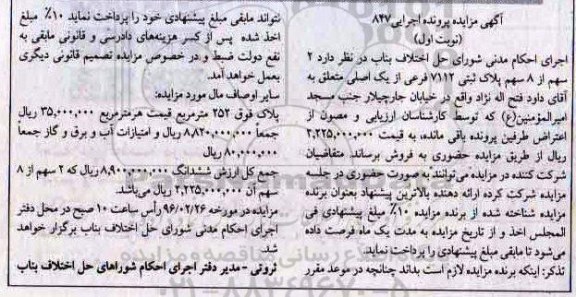 آگهی مزایده پرونده اجرایی ۸۴۷
(نوبت اول)
اجرای احکام مدنی شورای حل اختلاف بناب در نظر دارد ۲
سهم از ۸ سهم پلاک ثبتی ۷۱۱۲ فرعی از یک اصلی متعلق به
آقای داود فتح اله نژاد واقع در خیابان جارچیلار جنب مسجد
امیرالمؤمنین(ع) که توسط کارشناسان ارزیابی و مصون از
اعتراض طرفین پرونده باقی مانده، به قیمت ۲,۲۲۵,۰۰۰,۰۰۰
ریال از طریق مزایده حضوری به فروش برساند. متقاضیان
شرکت کننده در مزایده می‌توانند به صورت حضوری در جلسه
مزایده شرکت کرده ارائه دهنده بالاترین پیشنهاد بعنوان برنده
مزایده شناخته شده از برنده مزایده ۱۰٪ مبلغ پیشنهادی فی
المجلس اخذ و از تاریخ مزایده به مدت یک ماه فرصت داده
می‌شود تا مابقی مبلغ پیشنهادی را پرداخت نماید.
تذکر: اینکه برنده مزایده لازم است بداند چنانچه در موعد مقرر
نتواند مابقی مبلغ پیشنهادی خود را پرداخت نماید ۱۰٪ مبلغ
اخذ شده پس از کسر هزینه‌های دادرسی و قانونی مابقی به
نفع دولت ضبط و در خصوص مزایده تصمیم قانونی دیگری
بعمل خواهد آمد.
سایر اوصاف مال مورد مزایده:
پلاک فوق ۲۵۲ مترمربع قیمت هرمترمربع ۳۵,۰۰۰,۰۰۰ ریال
جمعاً ۸۸۲۰,۰۰۰,۰۰۰ ریال و امتیازات آب و برق و گاز جمعاً
۸۰,۰۰۰,۰۰۰ ریال
جمع کل ارزش ششدانگ ۸,۹۰۰,۰۰۰,۰۰۰ ریال که ۲ سهم از ۸
سهم آن ۲,۲۲۵,۰۰۰,۰۰۰ ریال می‌باشد.
مزایده در مورخه ۹۶/۰۲/۲۶ رأس ساعت ۱۰ صبح در محل دفتر
اجرای احکام مدنی شورای حل اختلاف بناب برگزار خواهد
شد.
ثروتی - مدیر دفتر اجرای احکام شوراهای حل اختلاف بناب
۰۲۱-۸۸۳۴۹۶۷۰-۵